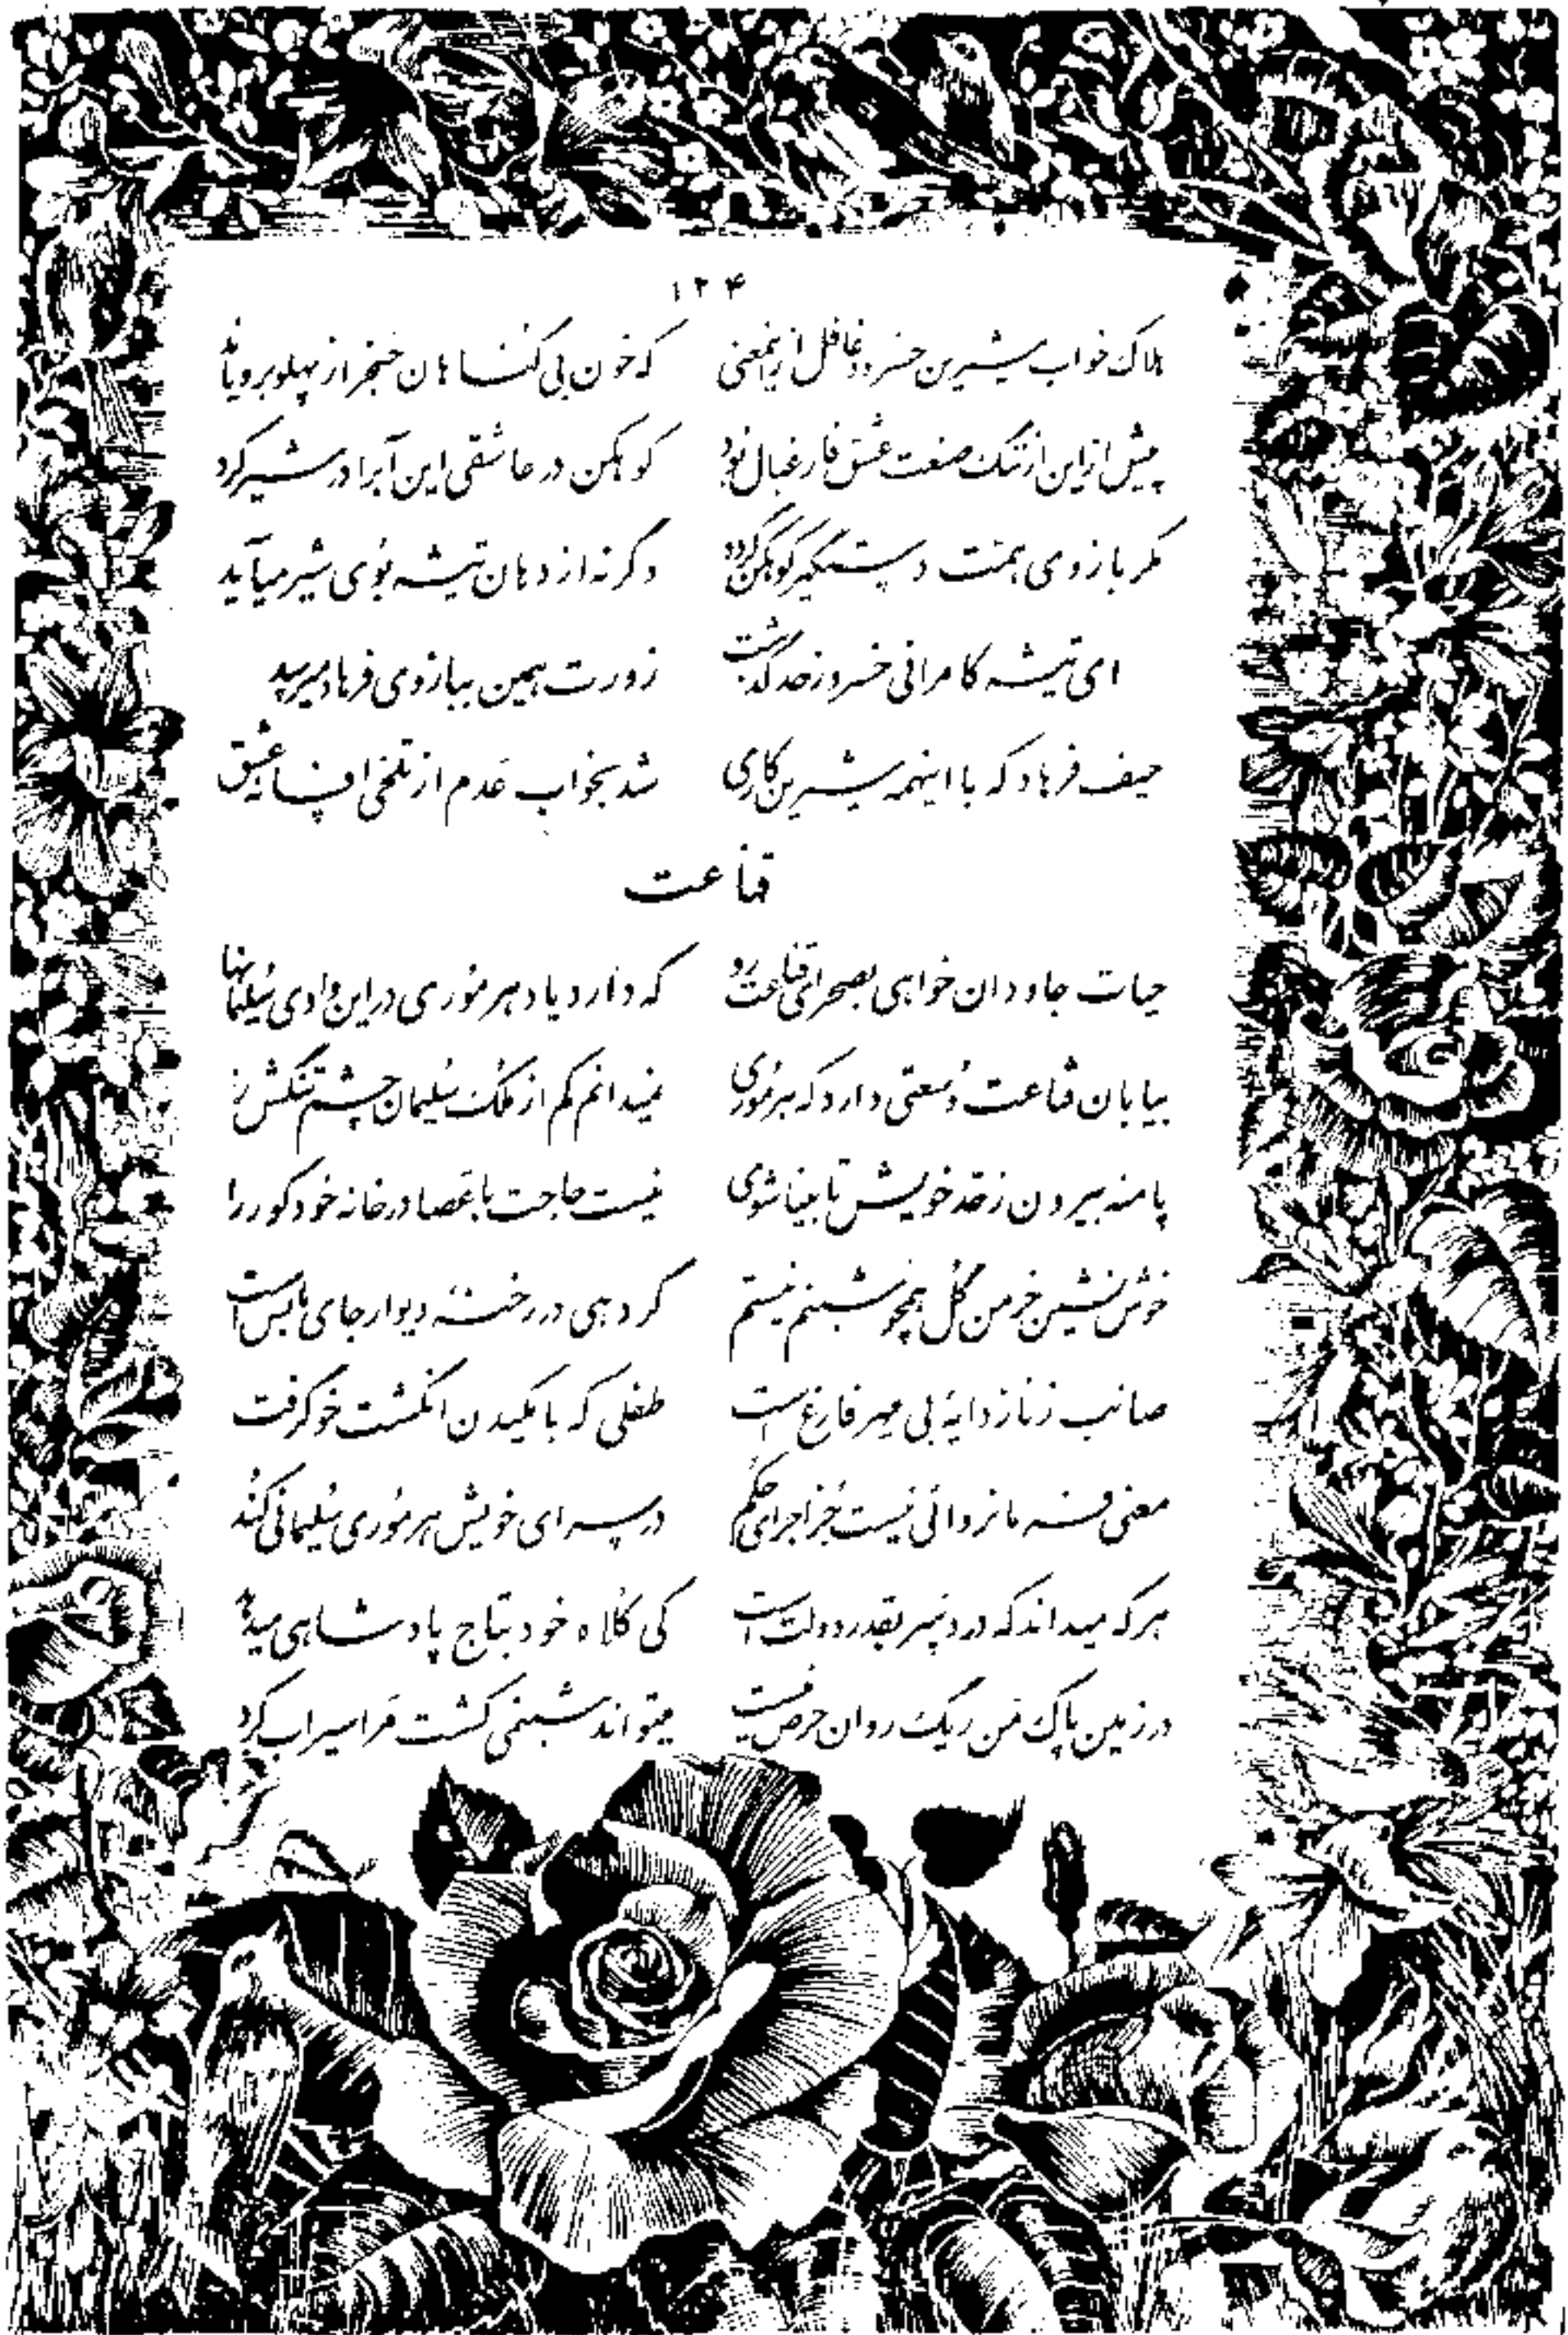 ۱۲۴
هلاک خواب شیرین خسرو و غافل ازینمعنی که خون بی گناهان خنجر از پهلو برویاند
پیش از این از ننگ صنعت عشق فارغبال بود کوهکن در عاشقی این آبرا در شیر کرد
مگر بازوی همت دستگیر کوهکن گردد وگرنه از دهان تیشه بُوی شیر میآید
ای تیشه کامرانی خسرو ز حد گذشت زورت همین ببازوی فرهاد میرسد
حیف فرهاد که با اینهمه شیرین کاری شد بخواب عَدم از تلخی افسانهٔ عشق
قناعت
حیات جاودان خواهی بصحرای قناعت رو که دارد یاد هر مُوری در این وادی سُلیمانها
بیابان قناعت وُسعتی دارد که هر مُوری نمیداند کم از مُلک سُلیمان چشم تنگش را
پا منه بیرون ز حَد خویش تا بینا شوی نیست حاجت با عَصا در خانه خود کور را
خوش نشین خرمن گُل همچو شبنم نیستم گر دهی در رخنهٔ دیوار جای ما بس است
صائب ز ناز دایهٔ بی مهر فارغ است طفلی که با مکیدن انگشت خو گرفت
معنی فرمانروائی نیست جُز اجرای حُکم در سرای خویش هر مُوری سُلیمانی کُند
هر که میداند که دردِ سر بقدر دولت است کی کُلاه خود بتاج پادشاهی میدهد
در زمین پاک مَن ریگ روان حرص نیست میتواند شبنمی کشت مَرا سیراب کرد